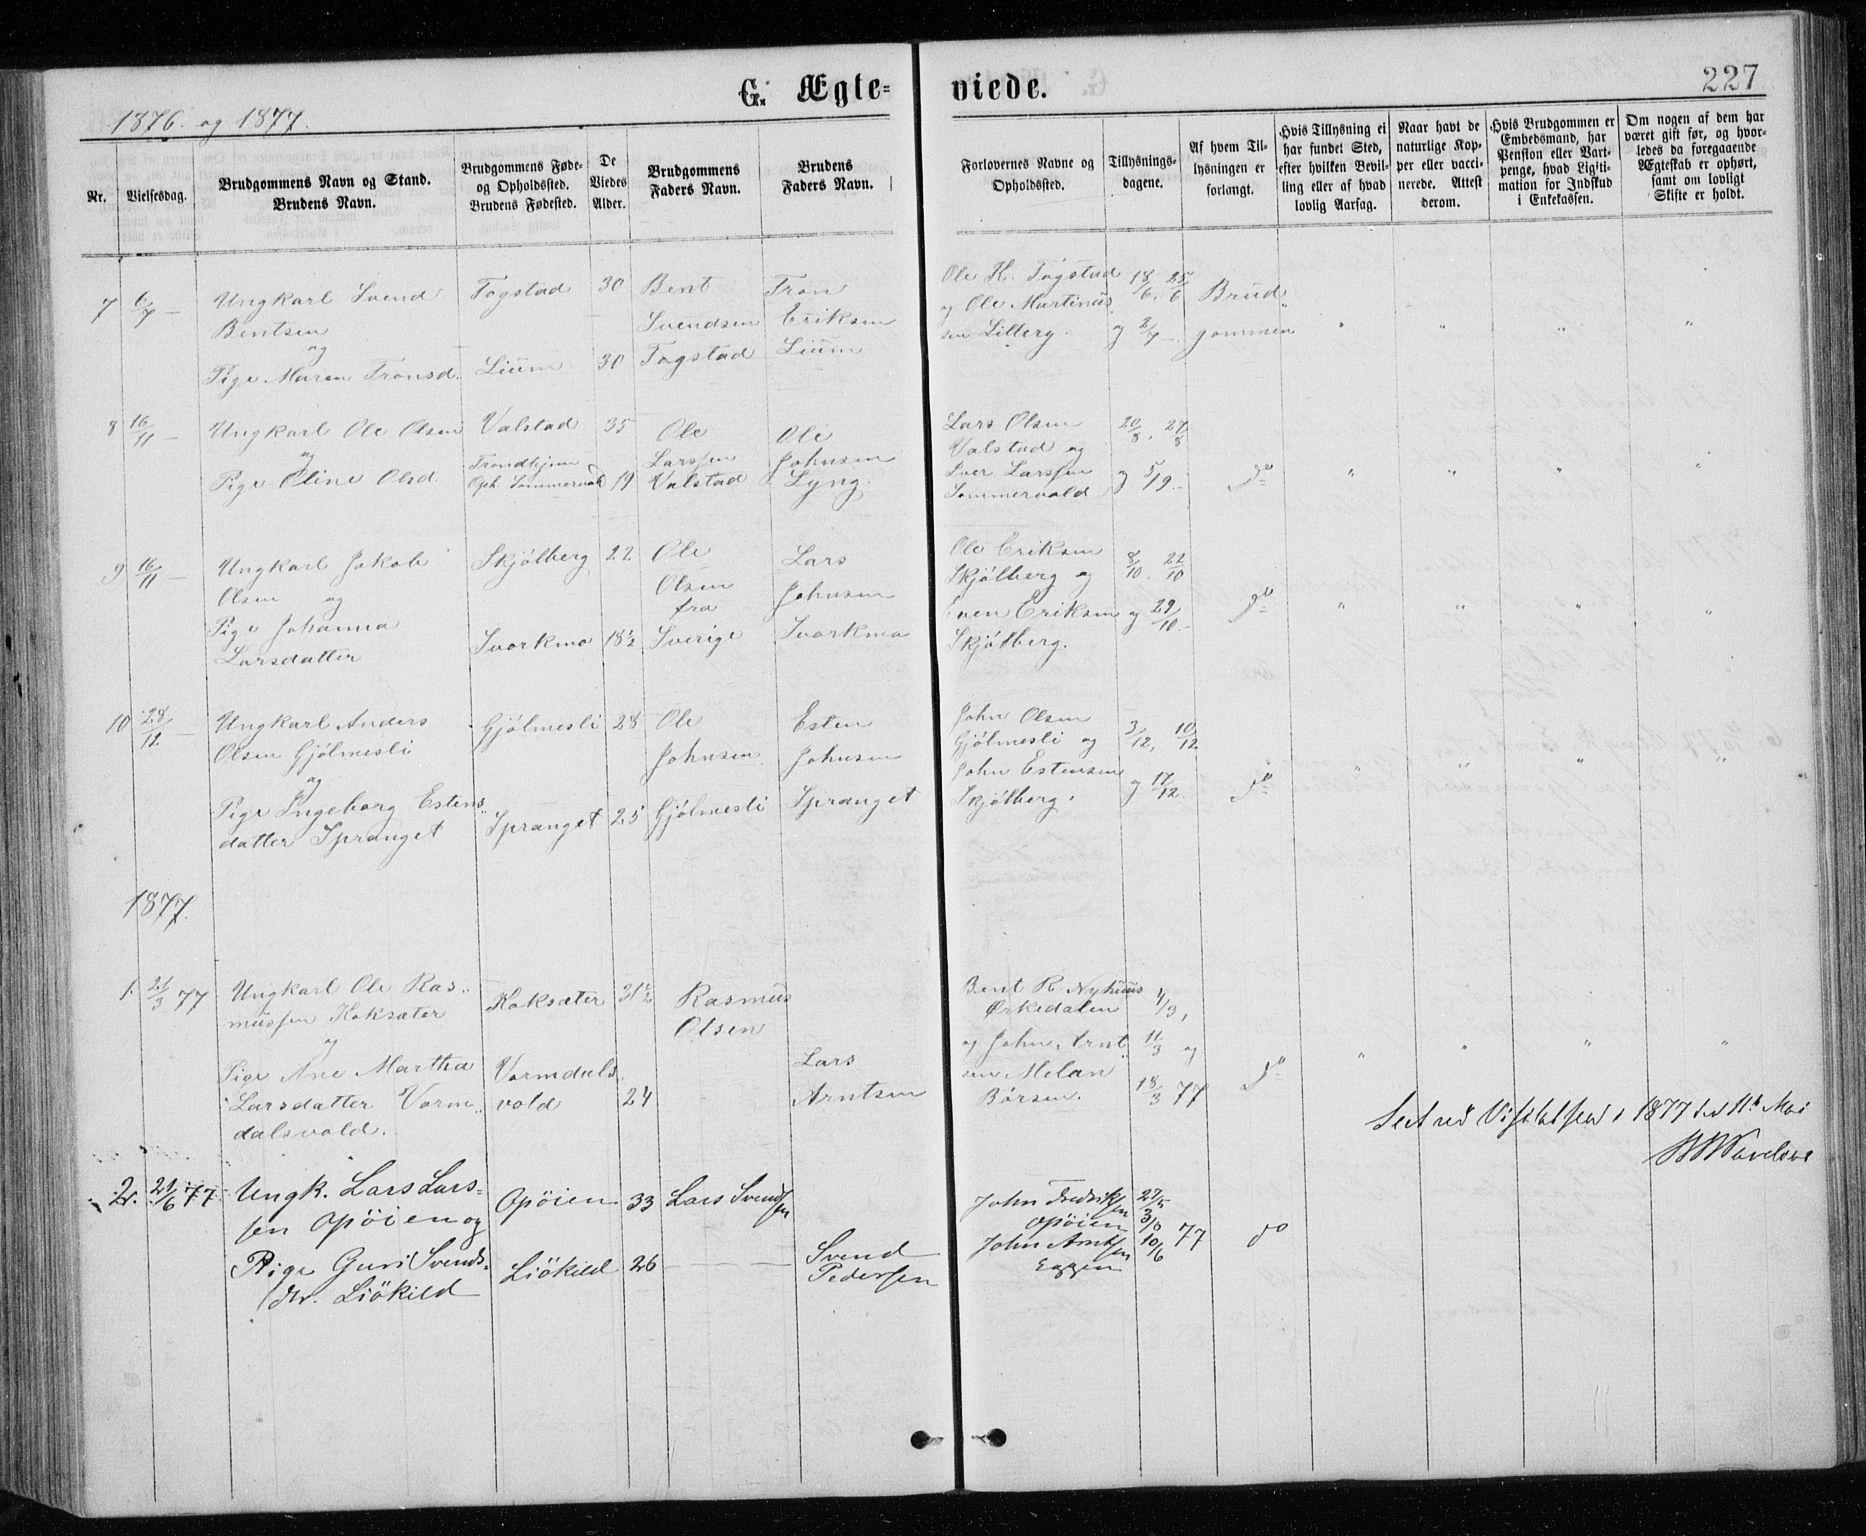 G. Ægte=
viede.
227
1876. og 1877.
Nr.
Vielsesdag.
Brudgommens Navn og Stand.
Brudens Navn.
Brudgommens Føde-
og Opholdssted.
Brudens Fødested.
De
Viedes
Alder.
Brudgommens
Faders Navn.
Brudens
Faders Navn.
Forlovernes Navne og
Opholdssted.
Tillysnings-
dagene.
Af hvem Til-
lysningen er
forlangt.
Hvis Tillysning ei
har fundet Sted,
efter hvilken Bevil-
ling eller af hvad
lovlig Aarsag.
Naar havt de
naturlige Kop-
per eller vacci-
nerede. Attest
derom.
Hvis Brudgommen er
Embedsmand, har
Pension eller Vart-
penge, hvad Ligiti-
mation for Indskud
i Enkekassen.
Om nogen af dem har
været gift før, og hvor-
ledes da foregaaende
Ægteskab er ophørt,
samt om lovligt
Skifte er holdt.
7 6/7 —
Ungkarl Svend
Bentsen
og
Pige Maren Tronsd.
Togstad
Lium
30
30
Bent
Svendsen
Togstad
Tron
Eriksen
Lium
Ole H. Togstad
og Ole Martinus
sen Lillery.
18/6. 25/6
og 2/7 —.
Brud
gommen
" " " "
8 16/11 —
Ungkarl Ole Olsen
og
Pige Oline Olsd.
Valstad
Trondhjem
Oph. Sommervold
35
19
Ole
Larssen
Valstad
Ole
Johnsen
Lyng.
Lars Olsen
Valstad og
Iver Larssen
Sommervold
20/8. 27/8
og 5/9.-
do
" " " "
9 16/11 —
Ungkarl Jakob
Olsen og
Pige Johanna
Larsdatter
Skjölberg
Svorkmo
22
18½
Ole
Olsen
fra
Sverige
Lars
Johnsen
Svorkmo
Ole Eriksen
Skjölberg og
Even Eriksen
Skjölberg.
8/10. 22/10
og 29/10.-
do
" " " "
10 28/12 —
Ungkarl Anders
Olsen Gjölmesli
og
Pige Ingeborg Estens
datter Spranget
Gjölmesli
Spranget
28
25
Ole
Johnsen
Gjölmesli
Esten
Johnsen
Spranget
John Olsen
Gjölmesli og
John Estensen
Skjölberg.
3/12, 10/12
og 17/12.
do
" " " "
1877.
1. 21/3 77
Ungkarl Ole Ras-
mussen Koksæter
og
Pige Ane Martha
Larsdatter Vorm-
dalsvold.
Koksæter
Vormdals
vold
31½
24
Rasmus
Olsen
Lars
Arntsen
Bent R. Nyhuus
Ørkedalen
og John Arnt-
sen Melan
Børsen.
4/3,
11/3 og
18/3 77
do
" " " "
Seet ved Visitatsen i 1877 den 11te Mai
2. 21/6 77
Ungk. Lars Lars=
sen Opöien og
Pige Guri Svends=
dtr. Liökild
Opöien
Liökild
33
26
Lars Svend
sen
Svend
Pedersen
John Fredrik
sen
Opöien
John Arnt
sen
Eggen
27/5
3/6 77
10/6
do